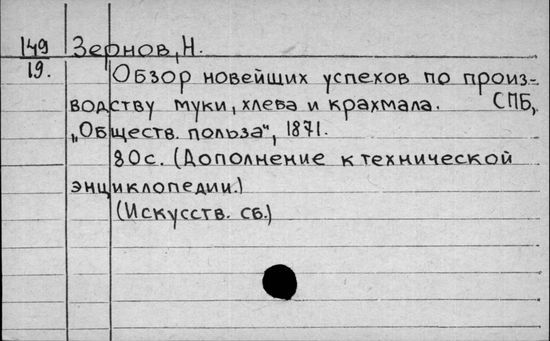 149
19.
Зернов, Н.
Обзор новейших успехов по произ-
водству муки, хлева и крахмала. СПБ,
„Обществ. польза“, 1871.
80с. (Дополнение к технической
энциклопедии.)
(Искусств. сб.)